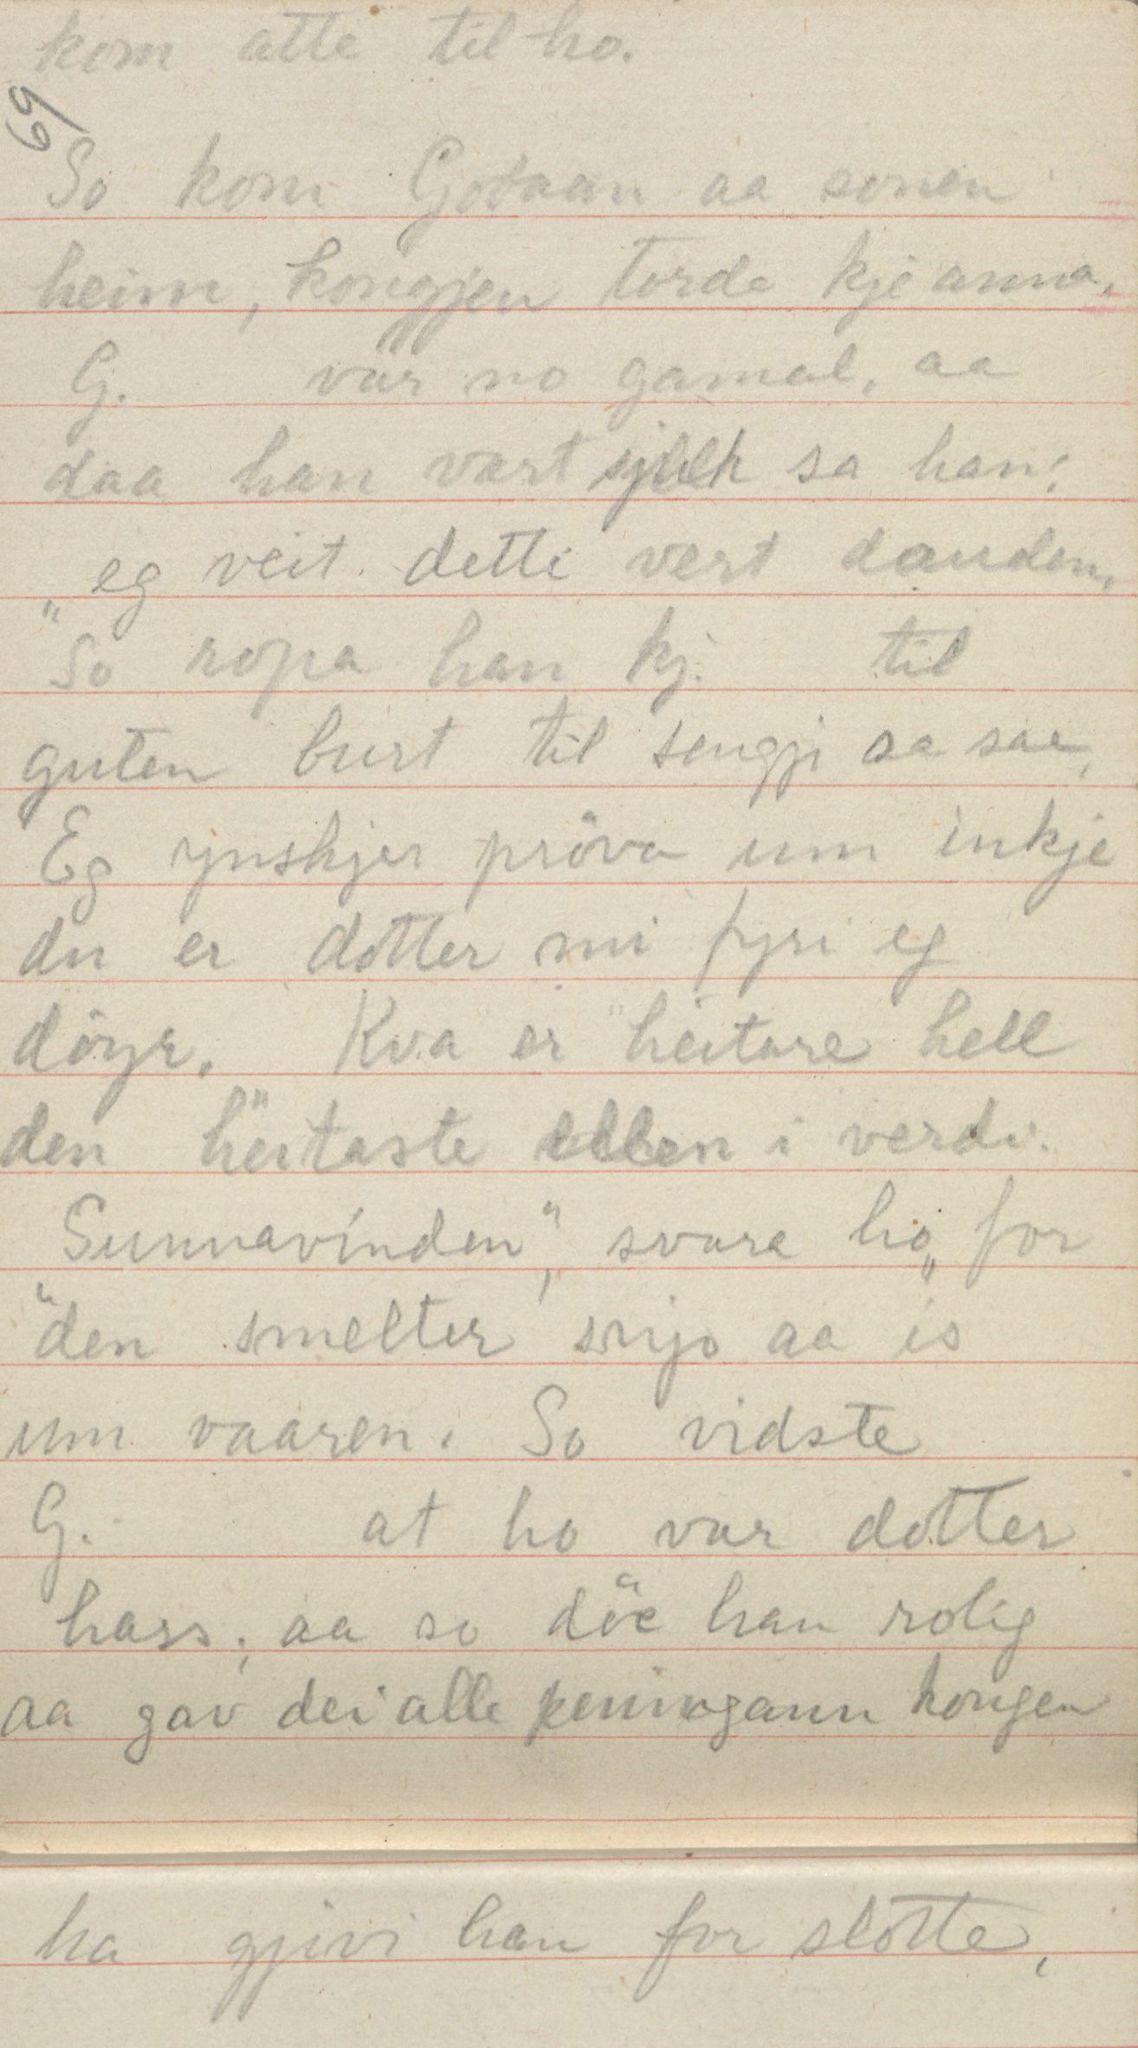 kom atte til ho.
59
So kom Godaan aa sonen
heim, kongjen torde kje anna.
G. var no gamal, aa
daa han vart sjuk sa han:
„eg veit detti vert dauden.
So ropa han kj. til
guten burt til sengji aa sae,
Eg ynskjer pröva um inkje
du er dotter mi fyri eg
döyr. Kva er heitare hell
den heitaste ellen i verdi.
Sunnavinden", svara ho „for
den smelter snjo aa is
um vaaren. So vidste
G. at ho var dotter
hass, aa so döe han rolig
aa gav dei alle peningann kongen
ha gjivi han for slotte,